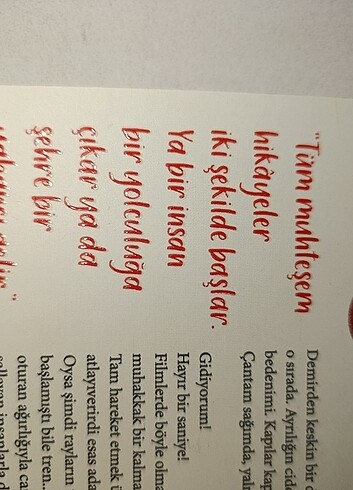 "Tüm muhteşem
hikâyeler
iki şekilde başlar.
Ya bir insan
bir yolculuğa
çıkar ya da
şehre bir
Demirden keskin bir
o sırada. Ayrılığın cid
bedenimi. Kapılar kap
Çantam sağımda, yal
Gidiyorum!
Hayır bir saniye!
Filmlerde böyle olma
muhakkak bir kalma
Tam hareket etmek ü
atlayıverirdi esas ada
Oysa şimdi rayların
başlamıştı bile tren..
oturan ağırlığıyla ça